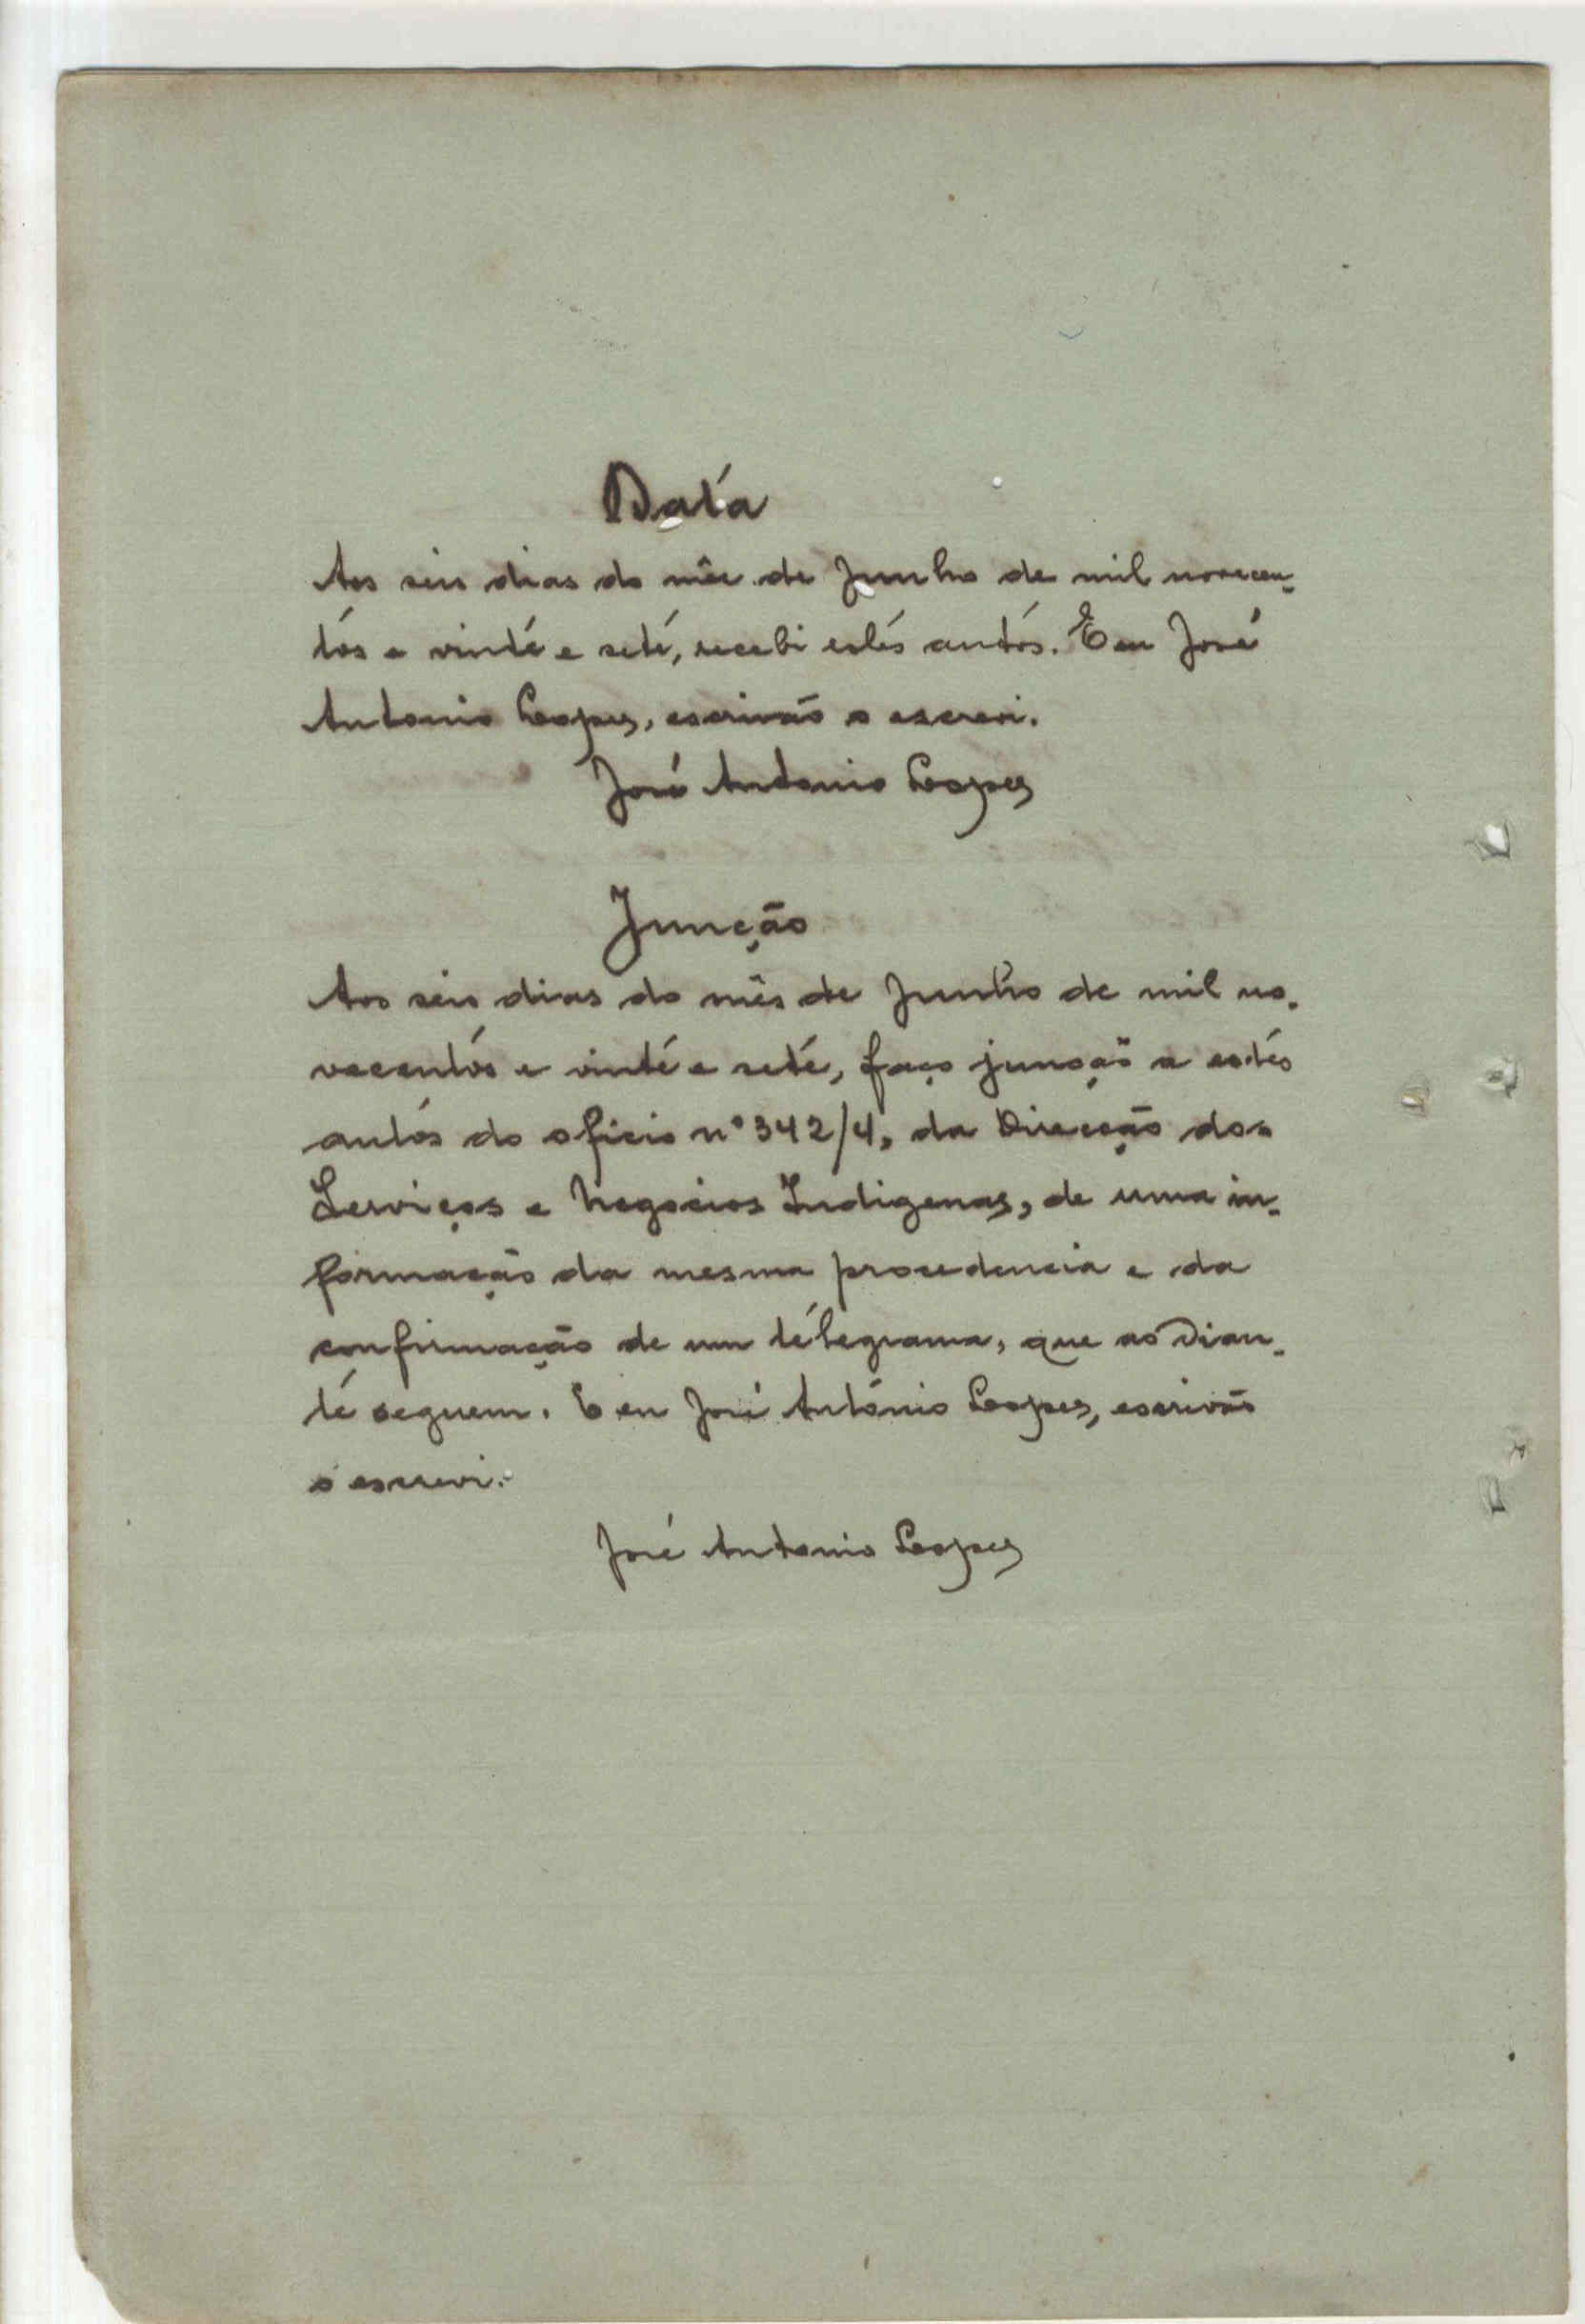 Data
Aos seis dias do mês de Junho de mil novecen-
tos e vinte e sete, recebi estes autos. E eu José
Antonio Lopes, escrivão o escrevi.
José Antonio Lopes
Junção
Aos seis dias do mês de Junho de mil no-
vecentos e vinte e sete, faço junção a estes
autos do oficio nº 342/4, da Direcção dos
Serviços e Negocios Indigenas, de uma in-
formação da mesma procedencia e da
confirmação de um telegrama, que ao dian-
te seguem. E eu José António Lopes, escrivão
o escrevi.
José Antonio Lopes